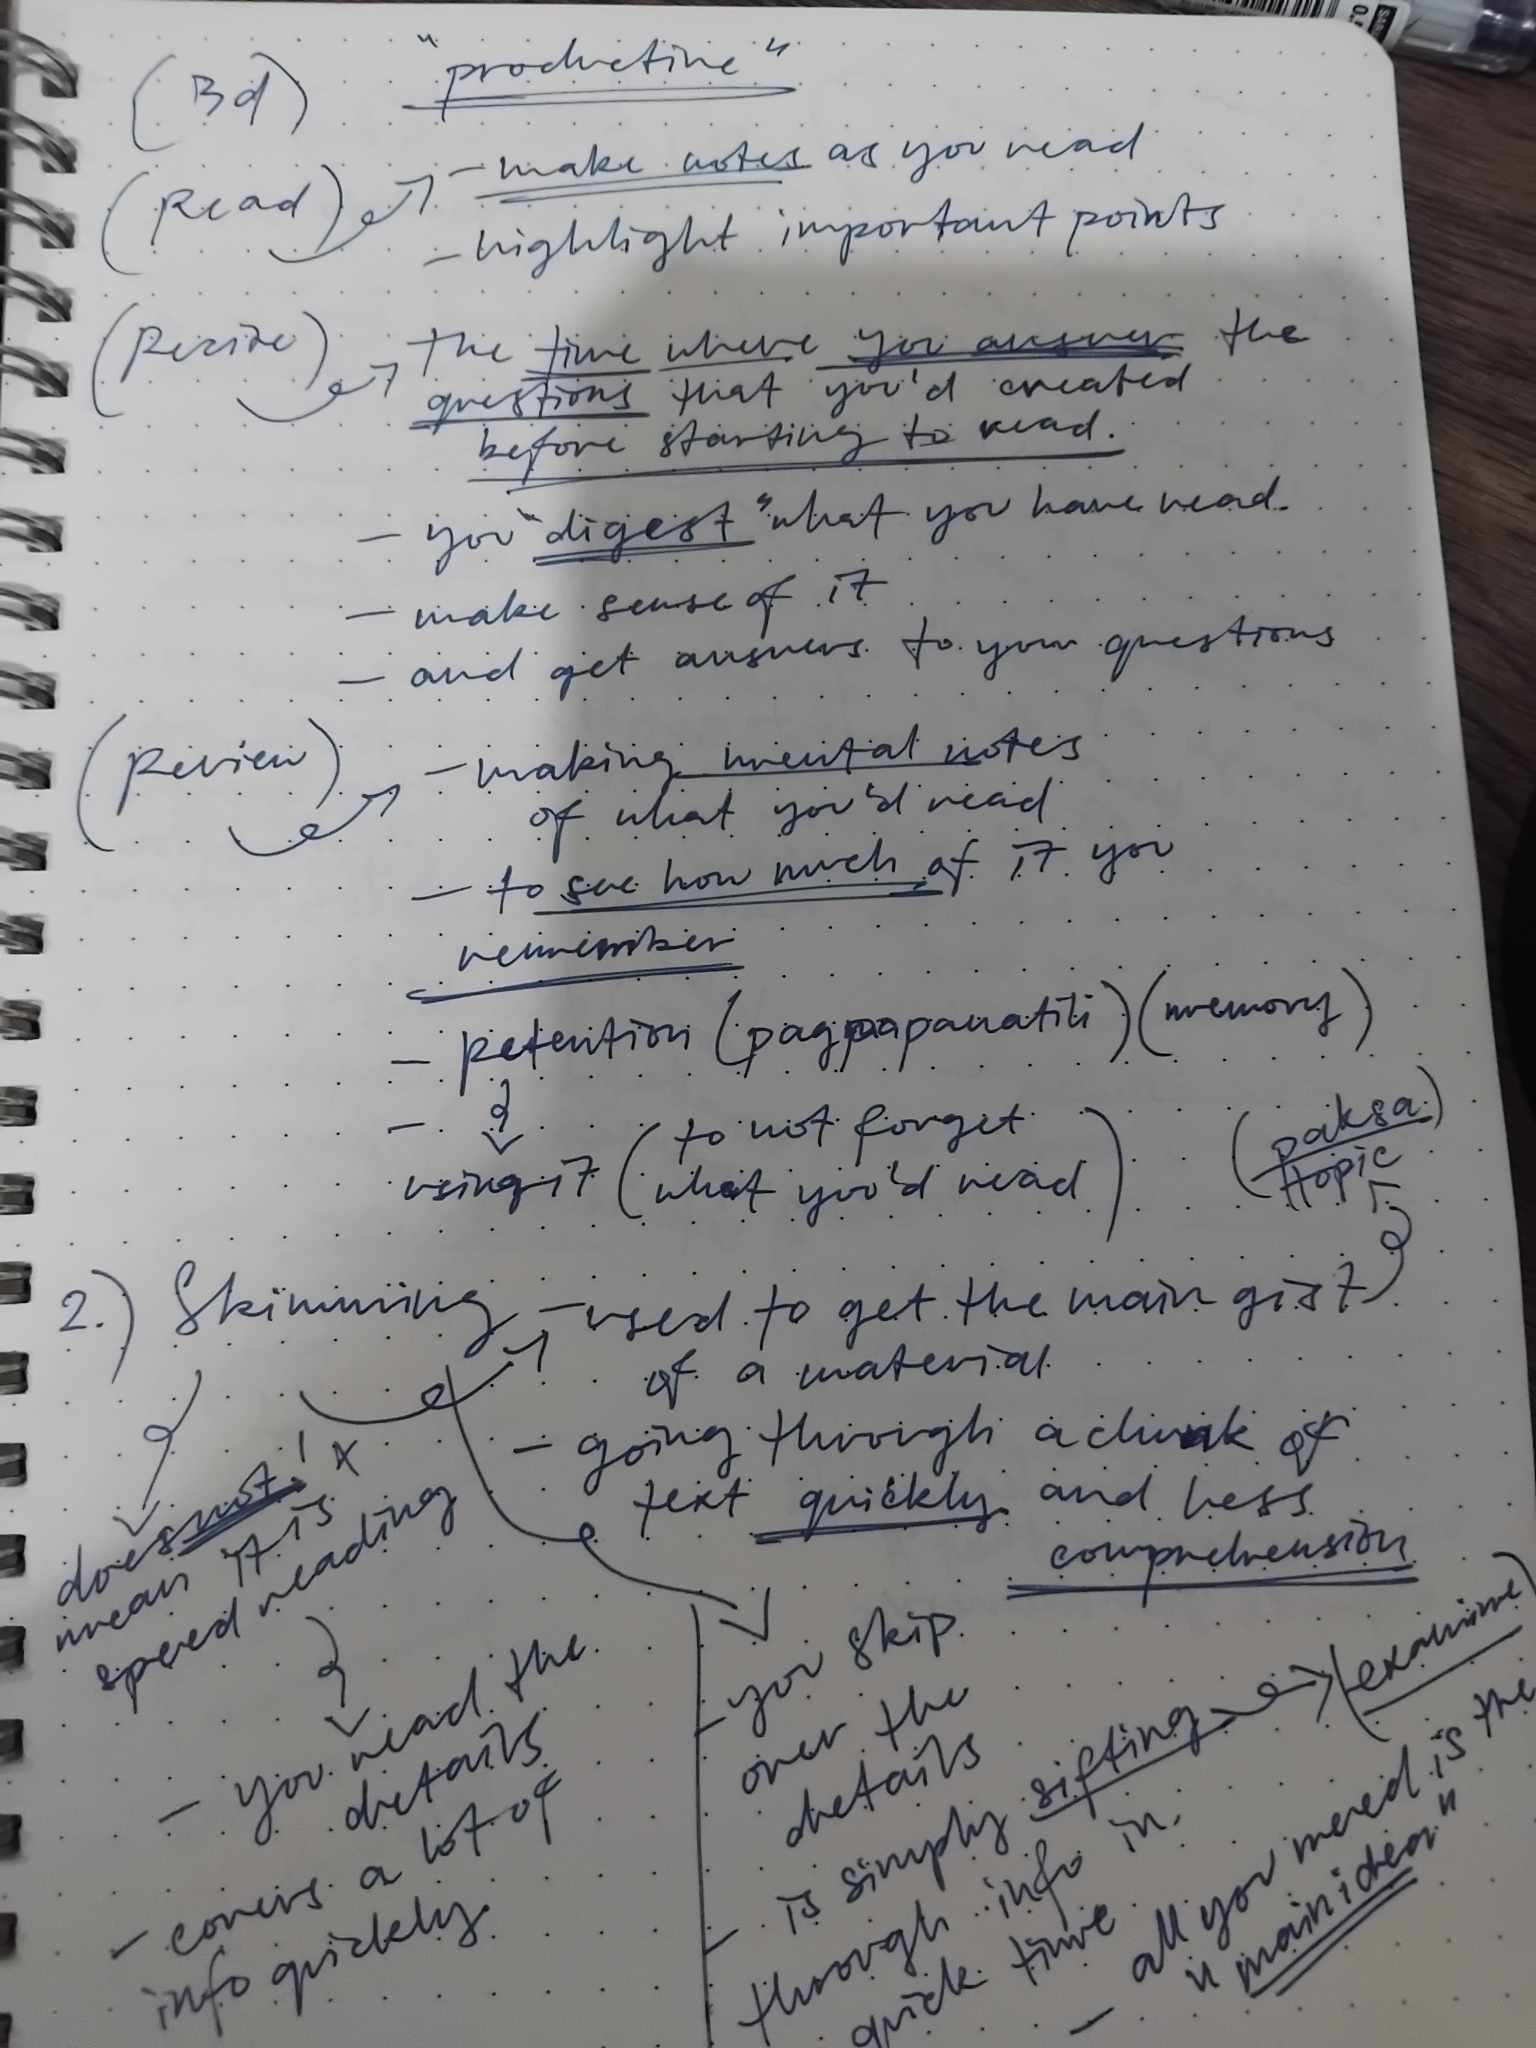 (3d) "productive"
(Read) - make notes as you read
- highlight important points
(Recite) the time where you answer the
questions that you'd created
before starting to read.
- you "digest" what you have read.
- make sense of it
- and get answers to your questions
(Review) - making mental notes
of what you'd read
- to see how much of it you
remember
- Retention (pagpapanatili) (memory)
-
using it (to not forget
what you'd read)
(paksa)
topic
2.) Skimming - used to get the main gist
of a material
- going through a chunk of
text quickly and less
comprehension
does not!
mean it is
speed reading
- you read the
details
- covers a lot of
info quickly
- you skip
over the
details
- is simply sifting (examine)
through info in
quick time
- all you need is the
"main idea"